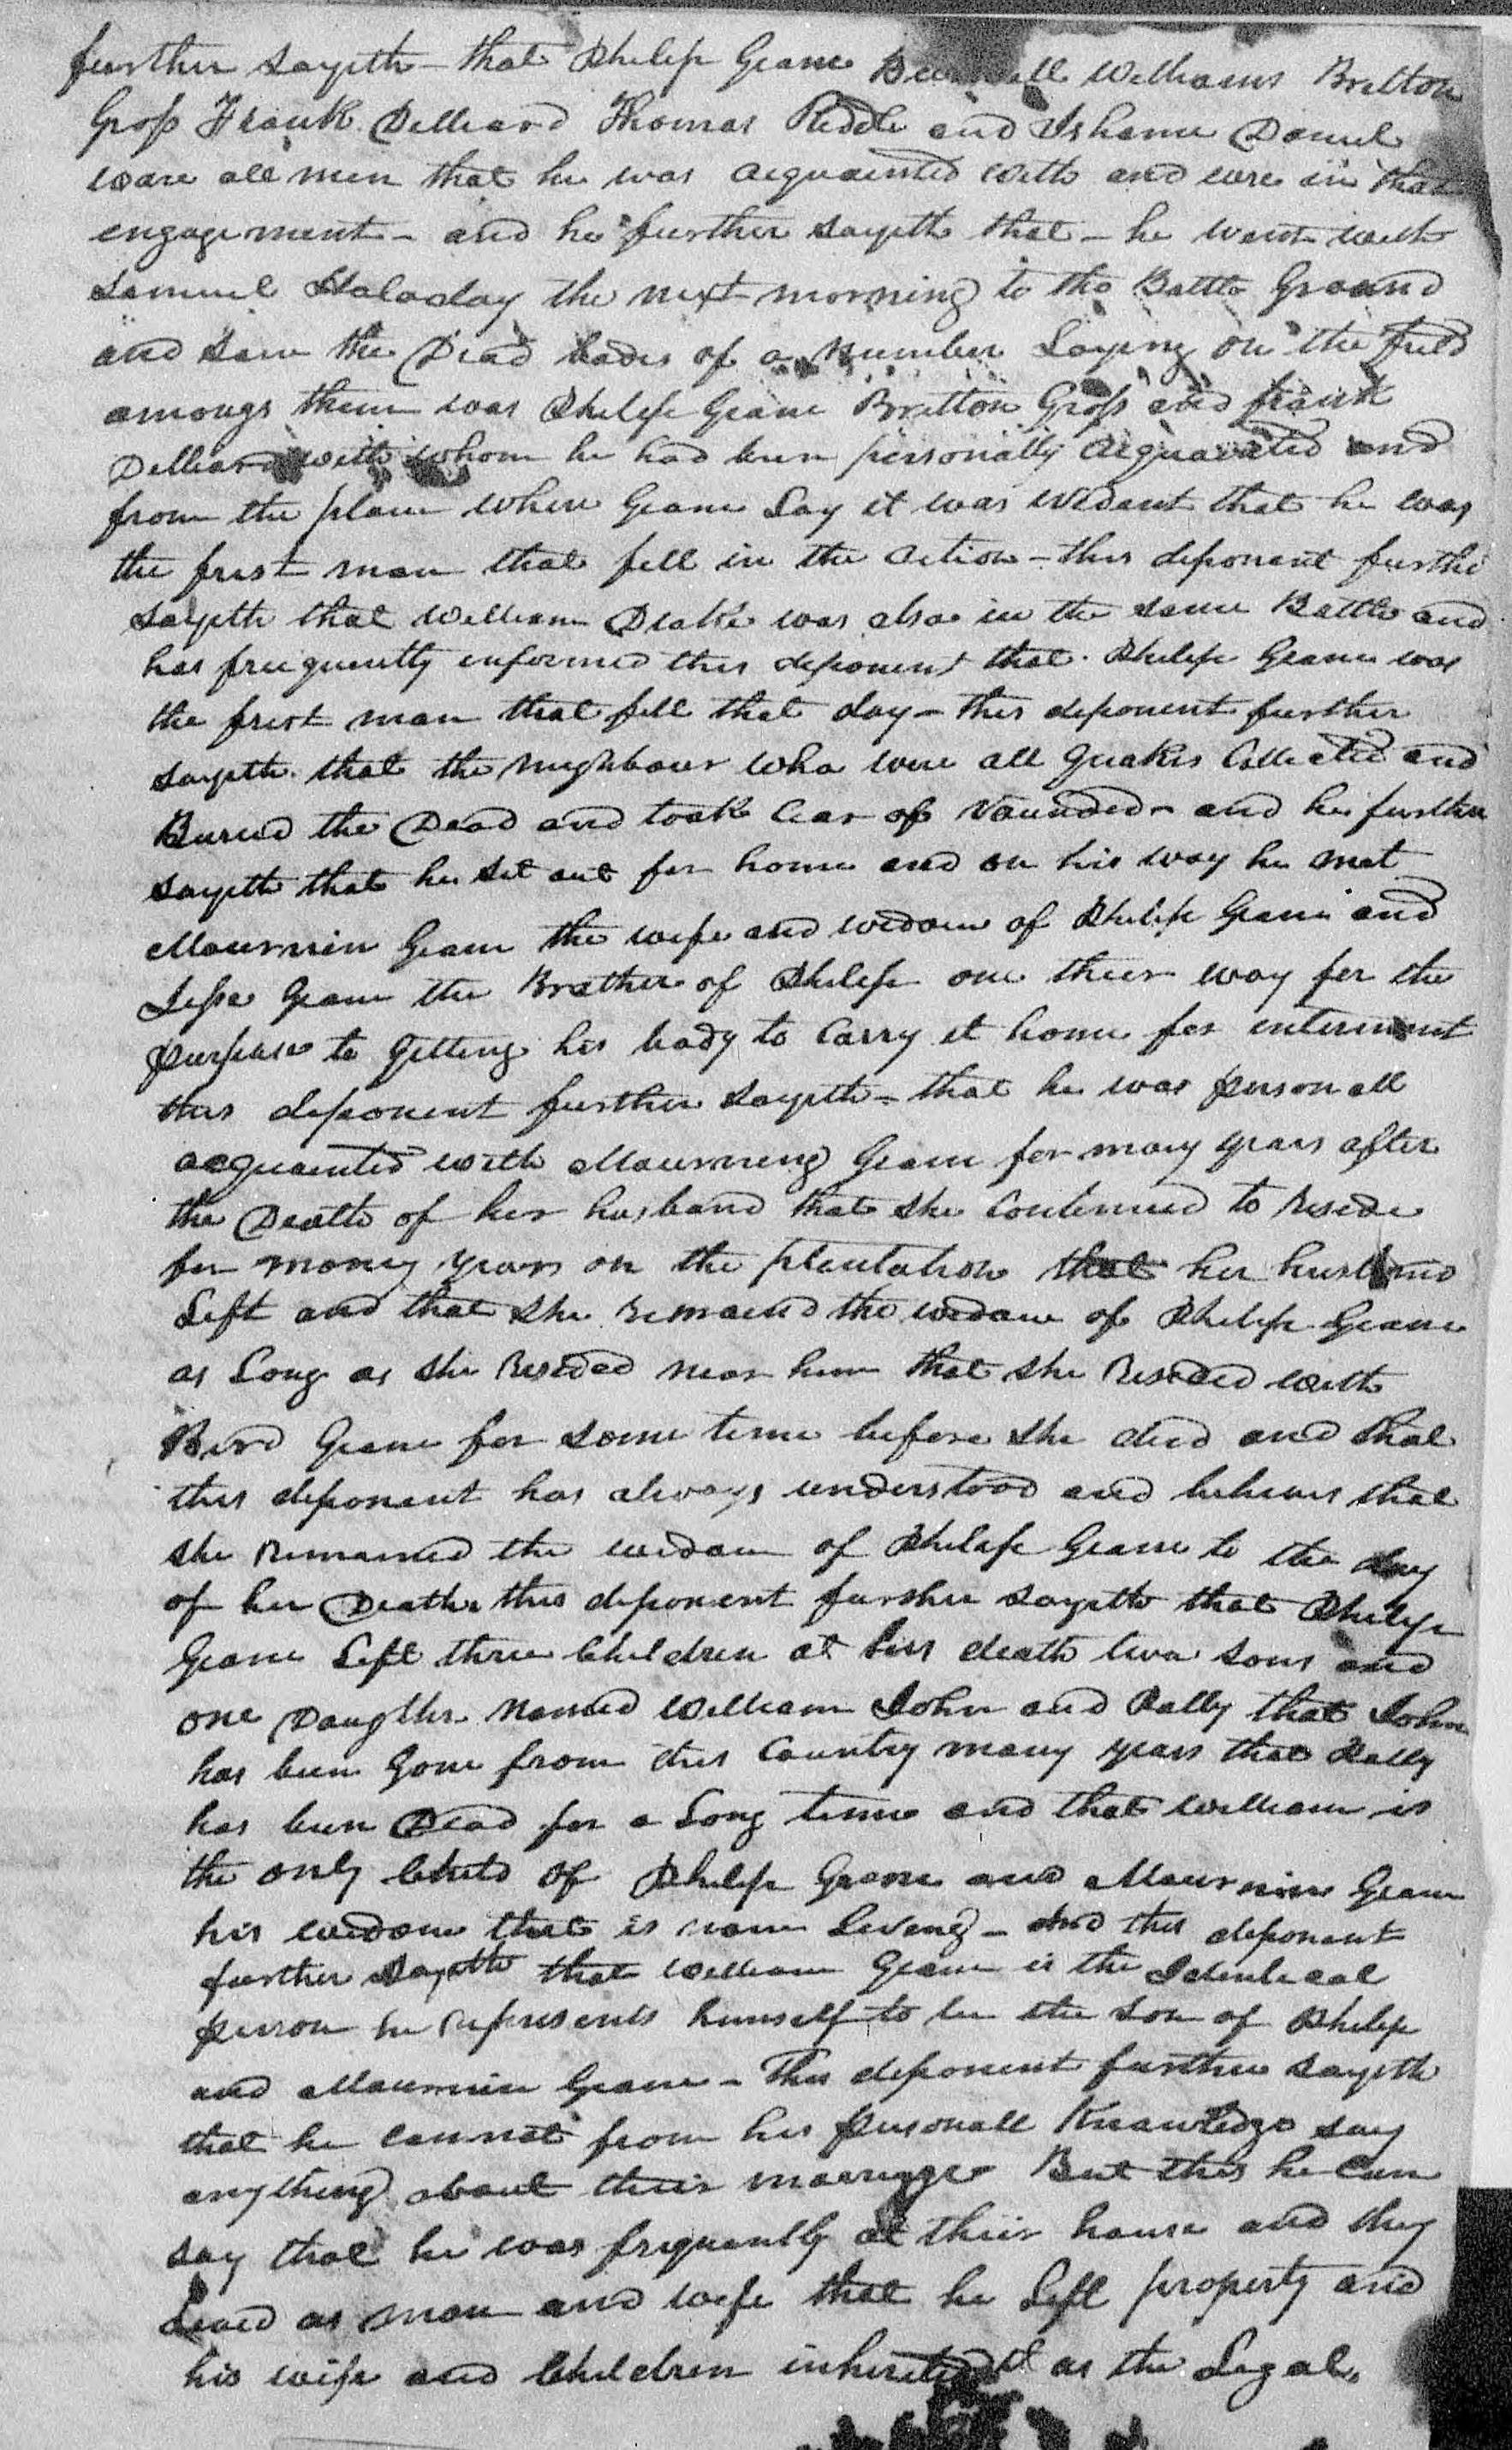 further sayeth - that Philip Geane Williams Britton
Gross Frank Delleard Thomas Riddle and Ishame Daniel
ware all men that he was acquainted with and were in that
engagement - and he further sayeth that - he went with
Samuel Haladay the next morning to the Battle Ground
and saw the Dead bodes of a Number Laying on the field
amongs them was Philip Geane Britton Gross and frank
Delleard with whom he had been personally acquainted and
from the place where Geane Lay it was evedent that he was
the frist man that fell in the action - this deponent further
sayeth that William Drake was also in the same Battle and
has frequently informed this deponent that Philip Geane was
the frist man that fell that day - this deponent further
sayeth that the neighbours who were all Quakers Collected and
Buried the Dead and took Care of Wounded - and he further
sayeth that he set out for home and on his way he met
Mournin Geane the wife and widow of Philip Geane and
Jesse Geane the Brother of Philip one their way for the
purpose to getting his body to Carry it home for interment
this deponent further sayeth - that he was personall
acquainted with Mourning Geane for many years after
the Death of her husband that she Continued to Reside
for many years on the plantation that her husband
Left and that she Remained the widow of Philip Geane
as Long as she Resided near him that she Resided with
Bird Geane for some time before she died and that
this deponent has always understood and believes that
she Remained the widow of Philip Geane to the day
of her Death this deponent further sayeth that Philip
Geane Left three Children at his death two sons and
one Daughter Named William John and Polly that John
has been Gone from this Country many years that Polly
has been Dead for a Long time and that William is
the only Child of Philip Geane and Mournin Geane
his widow that is now Living - and this deponent
further sayeth that William Geane is the Identical
person he represents himself to be the son of Philip
and Mournin Geane - This deponent further sayeth
that he cannot from his personall Knowledge say
anything about their marrige But this he Can
say that he was frequently at their house and they
Lived as man and wife that he Left property and
his wife and Children inherited it as the Legal